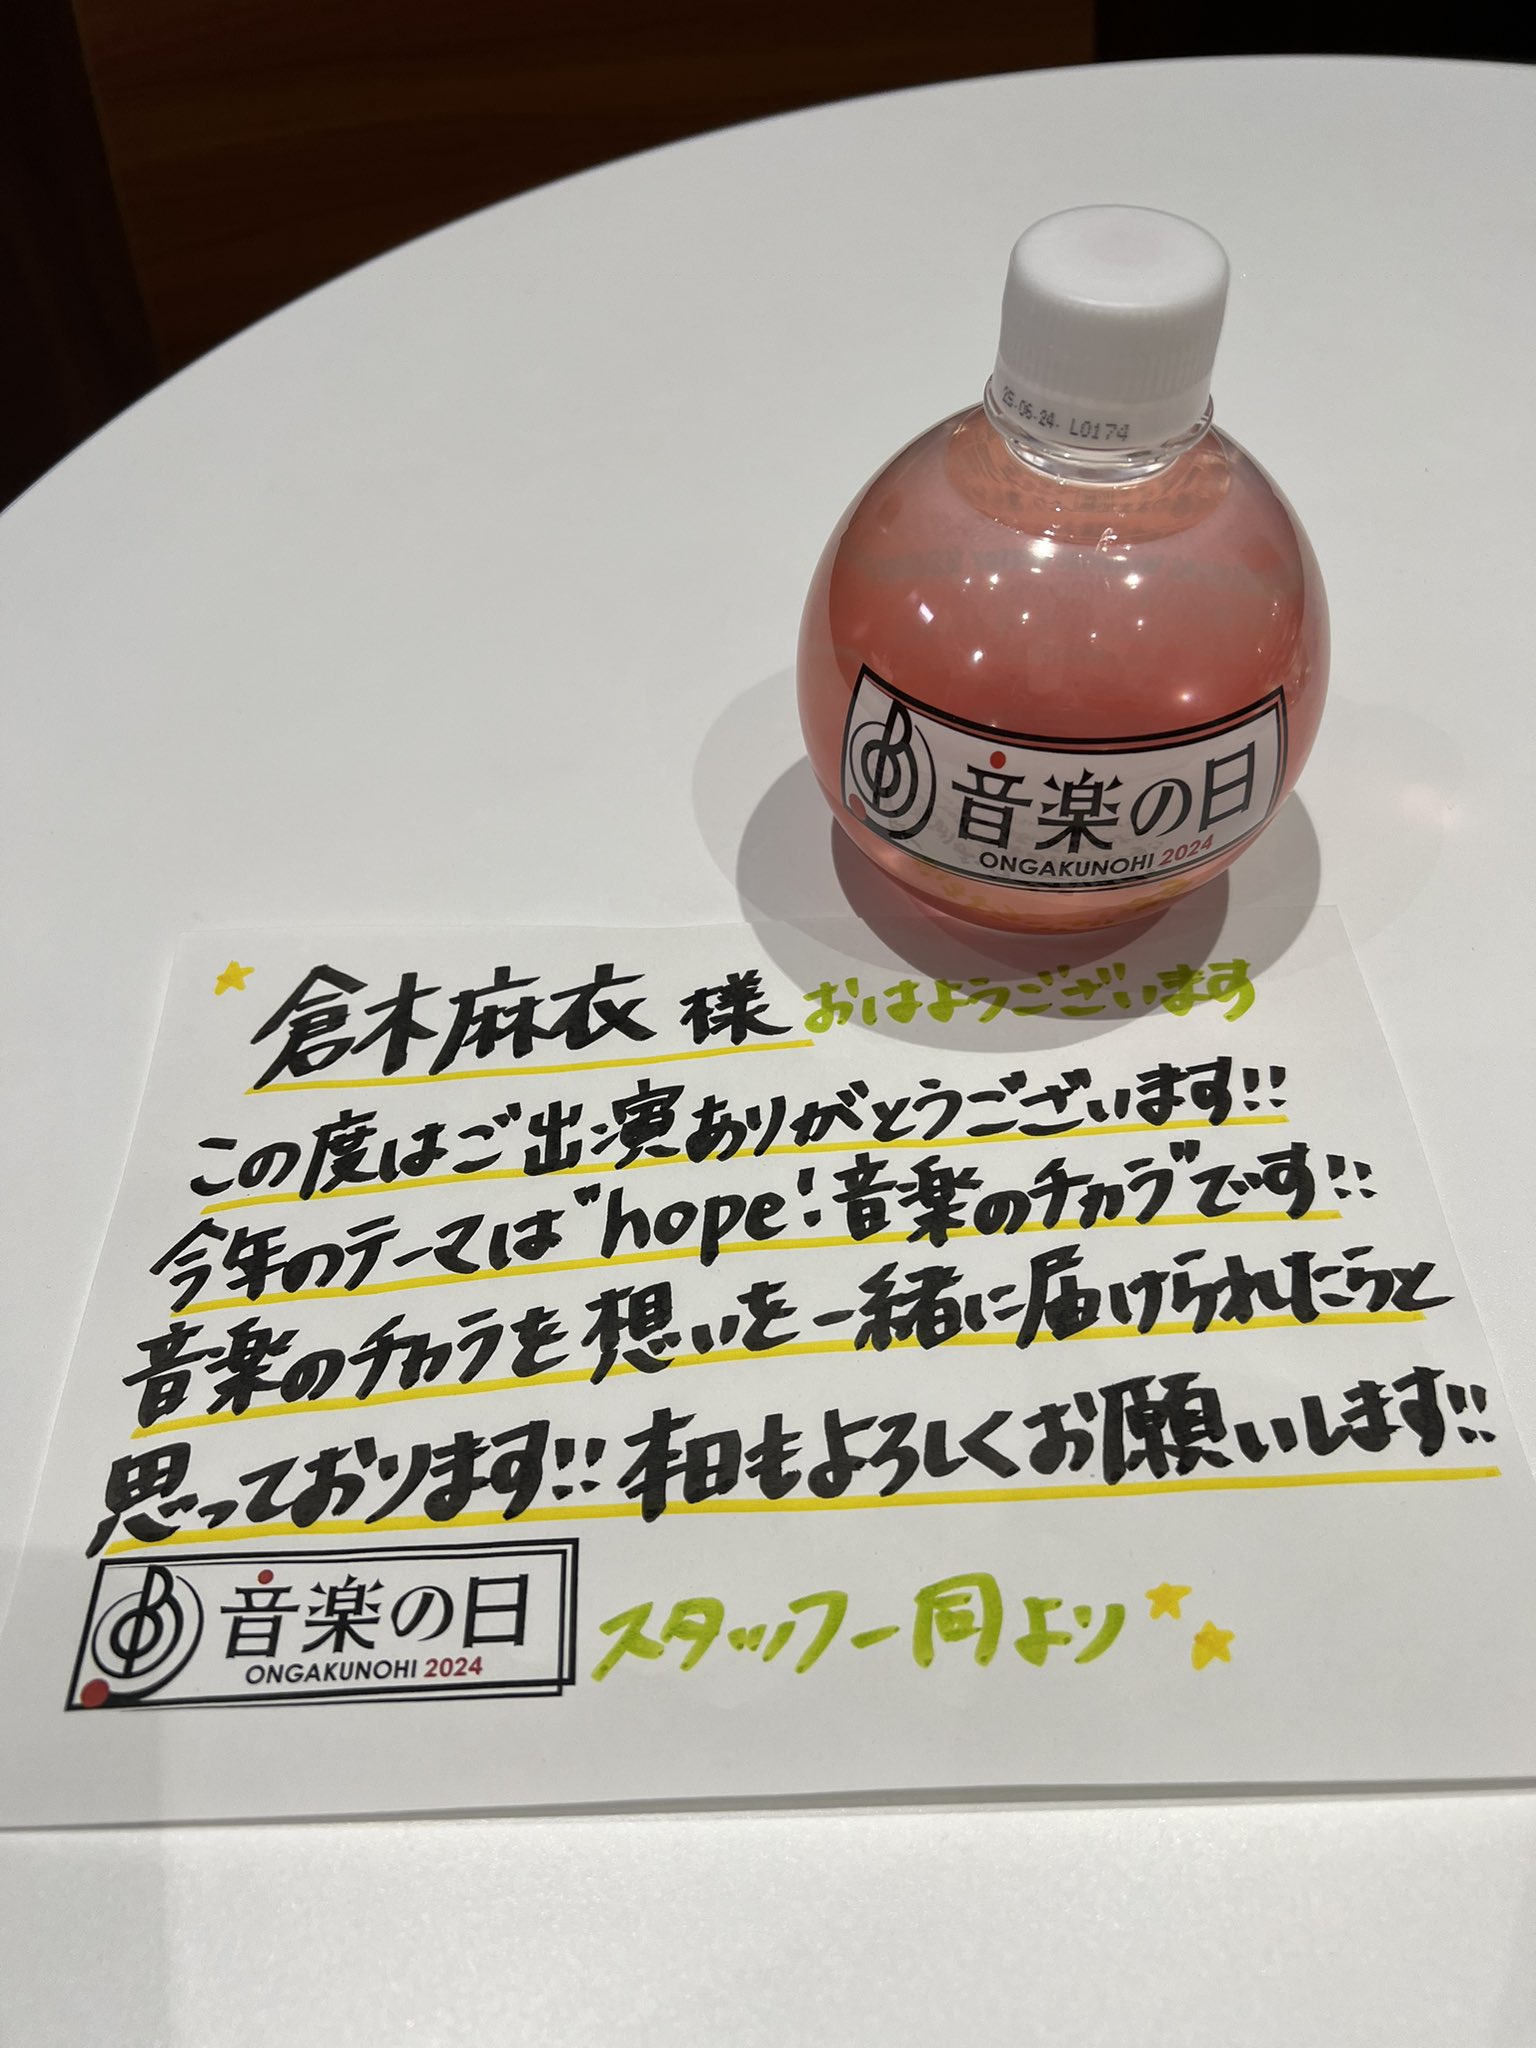 25-06-24. L0174
音楽の日
ONGAKUNOHI 2024
倉木麻衣 様 おはようございます
この度はご出演ありがとうございます!!
今年のテーマは"hope!音楽のチカラ"です!!
音楽のチカラを想いを一緒に届けられたらと
思っております!! 本日もよろしくお願いします!!
音楽の日
ONGAKUNOHI 2024
スタッフ一同より